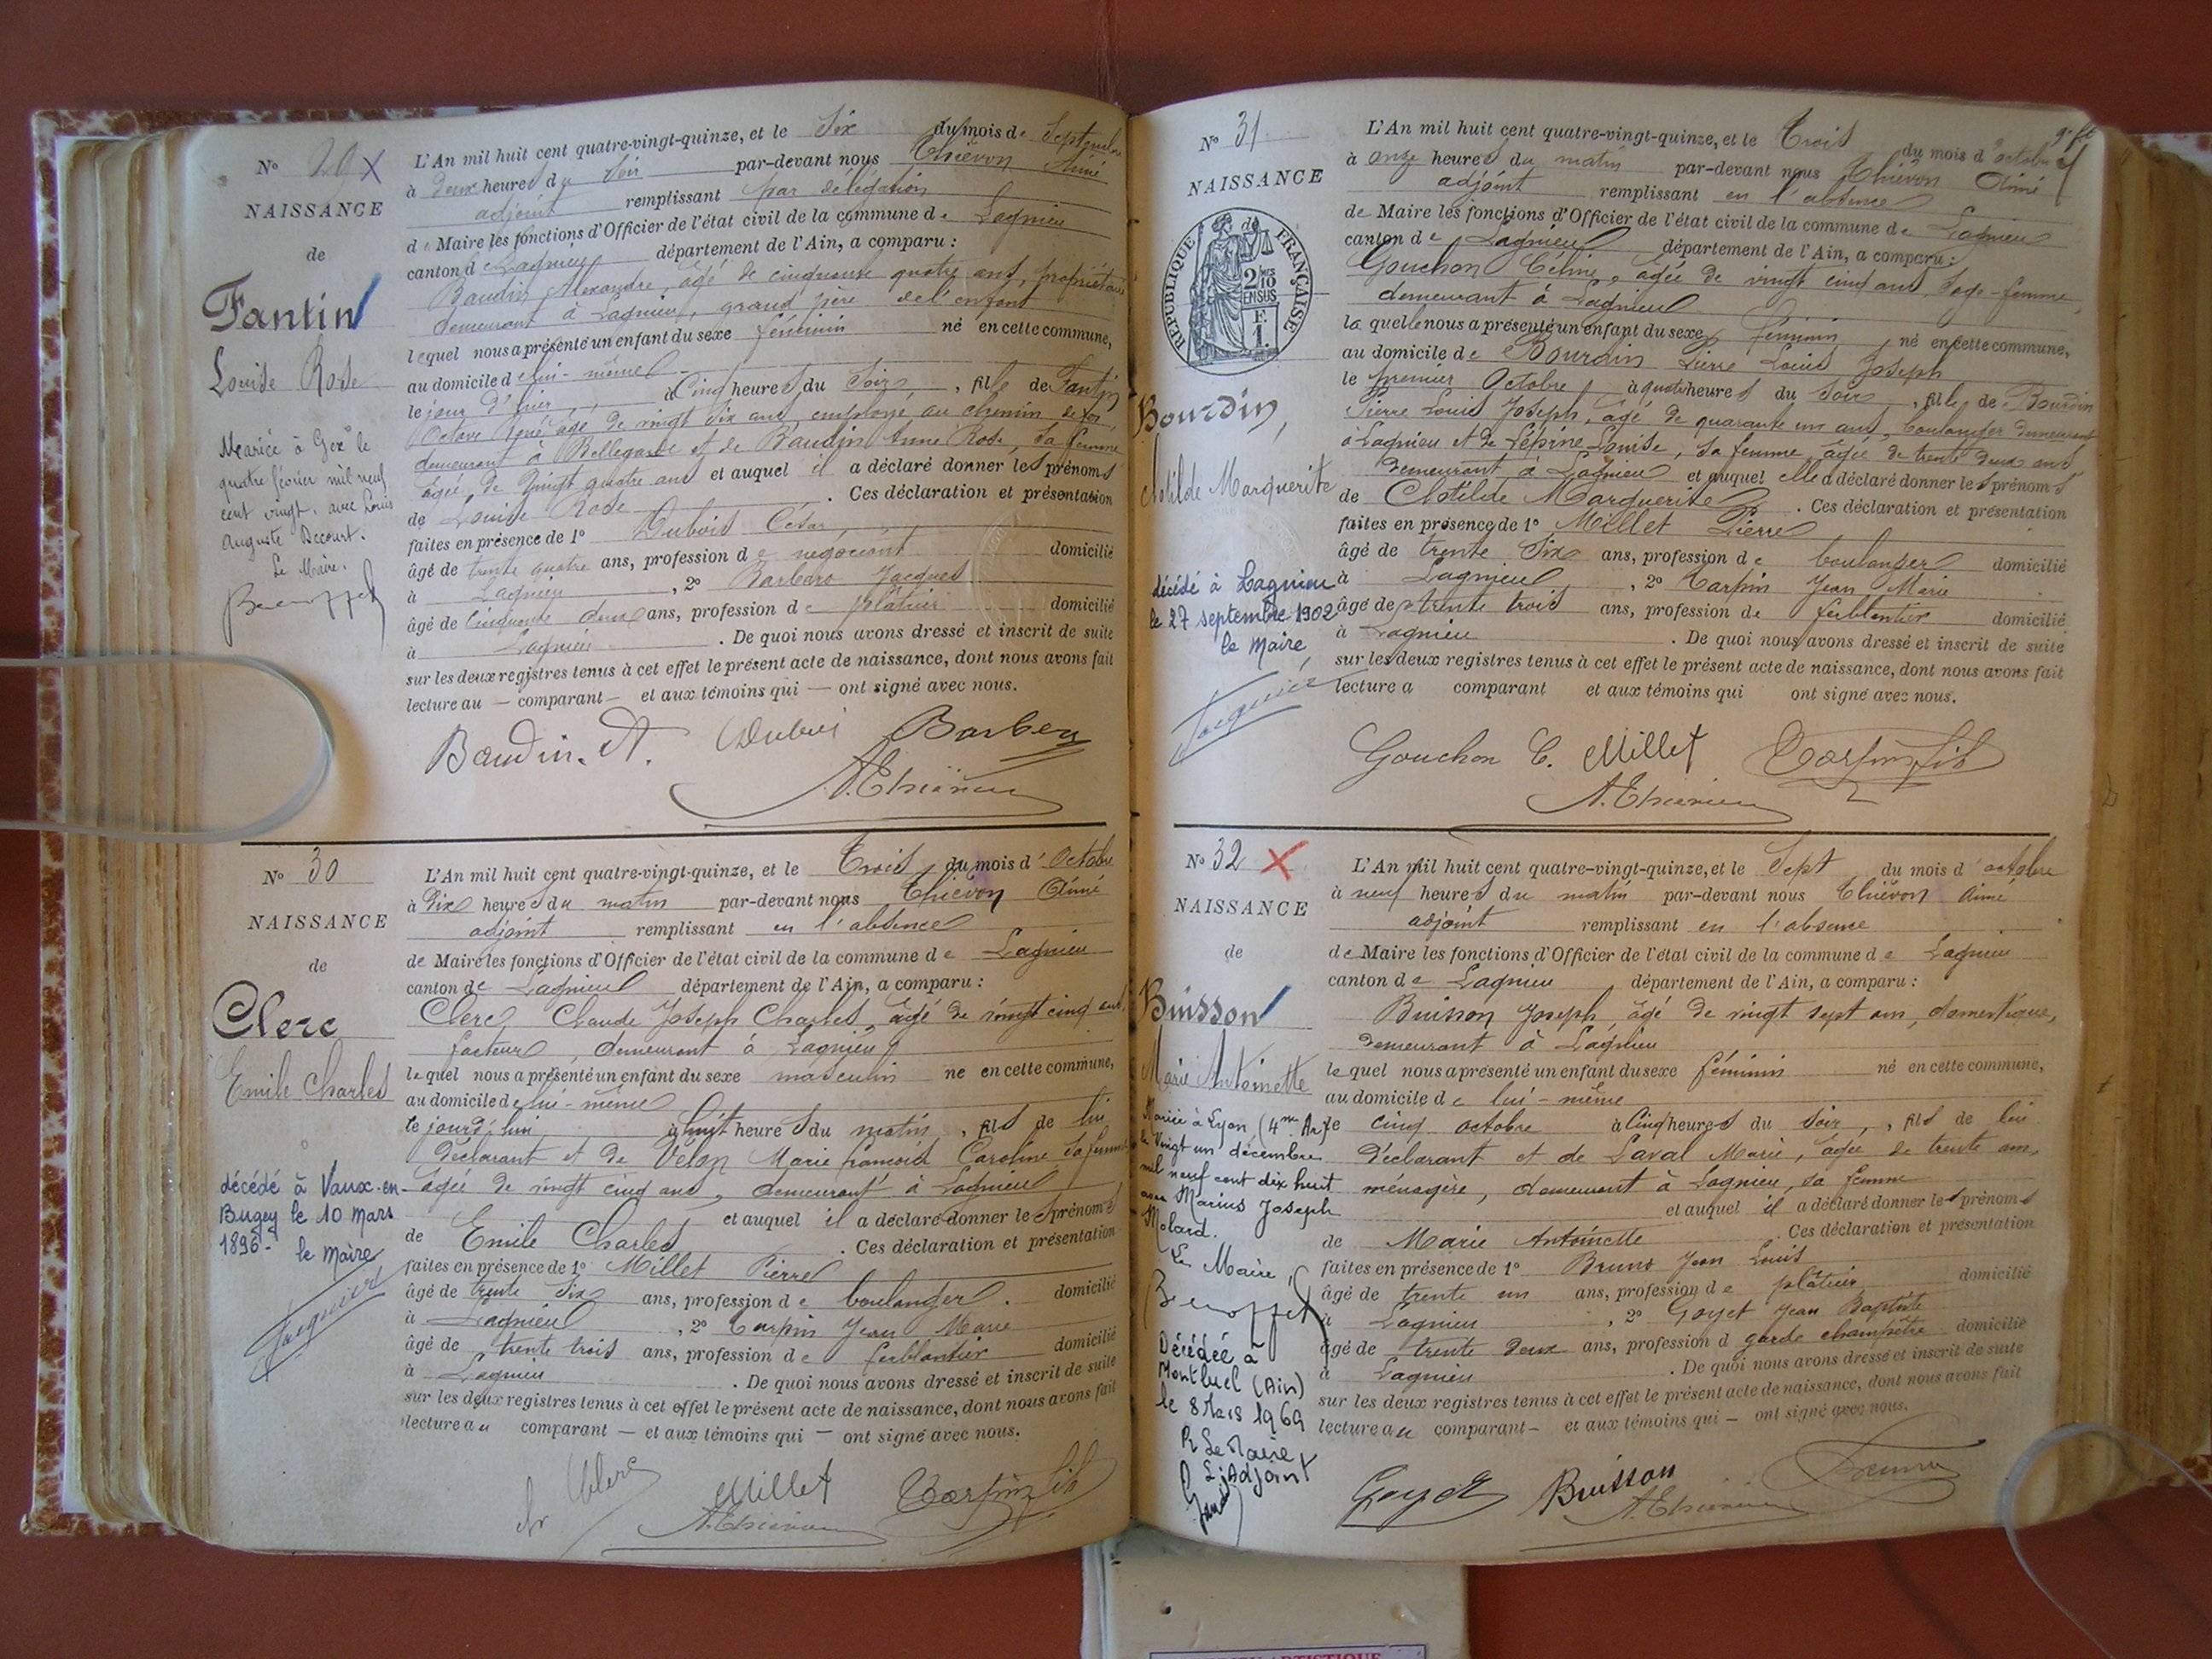 N° 29 X
NAISSANCE
de
Fantin
Louise Rose
Mariée à Gex le
quatre février mil neuf
cent vingt, avec Louis
Auguste Decourt.
Le Maire.
L'An mil huit cent quatre-vingt-quinze, et le Six du mois de Septembre
à deux heures du soir par-devant nous Thiévon Aimé
adjoint remplissant par délégation
de Maire les fonctions d'Officier de l'état civil de la commune de Lagnieu
canton de Lagnieu département de l'Ain, a comparu :
Baudin Alexandre, âgé de cinquante quatre ans, propriétaire
demeurant à Lagnieu, grand père de l'enfant
lequel nous a présenté un enfant du sexe féminin né en cette commune,
au domicile de lui-même
le jour d'hier à Cinq heures du Soir, fille de Fantin
Octave René âgé de vingt six ans, employé au chemin de fer,
demeurant à Bellegarde et de Baudin Anne Rose, sa femme
âgée de vingt quatre ans et auquel il a déclaré donner les prénoms
de Louise Rose . Ces déclaration et présentation
faites en présence de 1° Dubois César,
âgé de trente quatre ans, profession de négociant domicilié
à Lagnieu , 2° Barbero Jacques
âgé de Cinquante deux ans, profession de plâtrier domicilié
à Lagnieu . De quoi nous avons dressé et inscrit de suite
sur les deux registres tenus à cet effet le présent acte de naissance, dont nous avons fait
lecture au — comparant — et aux témoins qui — ont signé avec nous.
Baudin. A. Dubois Barbero
A. Thiévon
N° 30
NAISSANCE
de
Clerc
Emile Charles
décédé à Vaux-en-
Bugey le 10 Mars
1896-
le Maire
L'An mil huit cent quatre-vingt-quinze, et le Trois du mois d'Octobre
à Dix heures du matin par-devant nous Thiévon Aimé
adjoint remplissant en l'absence
de Maire les fonctions d'Officier de l'état civil de la commune de Lagnieu
canton de Lagnieu département de l'Ain, a comparu :
Clerc Claude Joseph Charles, âgé de vingt cinq ans,
facteur, demeurant à Lagnieu
lequel nous a présenté un enfant du sexe masculin né en cette commune,
au domicile de lui-même
le jourd'hui à huit heures du matin, fils de lui
déclarant et de Vélon Marie françoise Caroline sa femme
âgée de vingt cinq ans, demeurant à Lagnieu
et auquel il a déclaré donner les prénoms
de Emile Charles . Ces déclaration et présentation
faites en présence de 1° Millet Pierre
âgé de trente Six ans, profession de boulanger . domicilié
à Lagnieu , 2° Tarpin Jean Marie
âgé de trente trois ans, profession de ferblantier domicilié
à Lagnieu . De quoi nous avons dressé et inscrit de suite
sur les deux registres tenus à cet effet le présent acte de naissance, dont nous avons fait
lecture au comparant — et aux témoins qui — ont signé avec nous.
Clerc Millet Tarpin fils
A. Thiévon
N° 31
NAISSANCE
RÉPUBLIQUE FRANÇAISE
2/10
EN SUS
F.
1.
Bourdin,
Clotilde Marguerite
décédé à Lagnieu
le 27 septembre 1902
le Maire,
L'An mil huit cent quatre-vingt-quinze, et le Trois du mois d'octobre
à onze heures du matin par-devant nous Thiévon Aimé
adjoint remplissant en l'absence
de Maire les fonctions d'Officier de l'état civil de la commune de Lagnieu
canton de Lagnieu département de l'Ain, a comparu :
Gouchon Céline, âgée de vingt cinq ans, Sage-femme,
demeurant à Lagnieu
la quelle nous a présenté un enfant du sexe féminin, né en cette commune,
au domicile de Bourdin Pierre Louis Joseph
le premier Octobre à quatre heures du Soir, fille de Bourdin
Pierre Louis Joseph, âgé de quarante un ans, boulanger demeurant
à Lagnieu et de Lépine Louise, sa femme, âgée de trente deux ans
demeurant à Lagnieu et auquel elle a déclaré donner les prénoms
de Clotilde Marguerite . Ces déclaration et présentation
faites en présence de 1° Millet Pierre
âgé de trente Six ans, profession de boulanger domicilié
à Lagnieu , 2° Tarpin Jean Marie
âgé de trente trois ans, profession de ferblantier domicilié
à Lagnieu . De quoi nous avons dressé et inscrit de suite
sur les deux registres tenus à cet effet le présent acte de naissance, dont nous avons fait
lecture a comparant et aux témoins qui ont signé avec nous.
Gouchon C. Millet Tarpin fils
A. Thiévon
N° 32 X
NAISSANCE
de
Buisson
Marie Antoinette
Mariée à Lyon (4me Art)
le Vingt un décembre
mil neuf cent dix huit
avec Marius Joseph
Molard.
Le Maire,
Décédée à
Montluel (Ain)
le 8 Mars 1969
P. Le Maire
L'Adjoint
L'An mil huit cent quatre-vingt-quinze, et le Sept du mois d'octobre
à neuf heures du matin par-devant nous Thiévon Aimé
adjoint remplissant en l'absence
de Maire les fonctions d'Officier de l'état civil de la commune de Lagnieu
canton de Lagnieu, département de l'Ain, a comparu :
Buisson Joseph, âgé de vingt sept ans, domestique,
demeurant à Lagnieu
lequel nous a présenté un enfant du sexe féminin né en cette commune,
au domicile de lui-même
le cinq octobre à Cinq heures du soir, fils de lui
déclarant et de Laval Marie, âgée de trente ans,
ménagère, demeurant à Lagnieu, sa femme
et auquel il a déclaré donner les prénoms
de Marie Antoinette . Ces déclaration et présentation
faites en présence de 1° Bruno Jean Louis
âgé de trente un ans, profession de plâtrier domicilié
à Lagnieu , 2° Goyet Jean Baptiste
âgé de trente deux ans, profession d garde champêtre domicilié
à Lagnieu . De quoi nous avons dressé et inscrit de suite
sur les deux registres tenus à cet effet le présent acte de naissance, dont nous avons fait
lecture au comparant — et aux témoins qui — ont signé avec nous.
Goyet Buisson Bruno
A. Thiévon